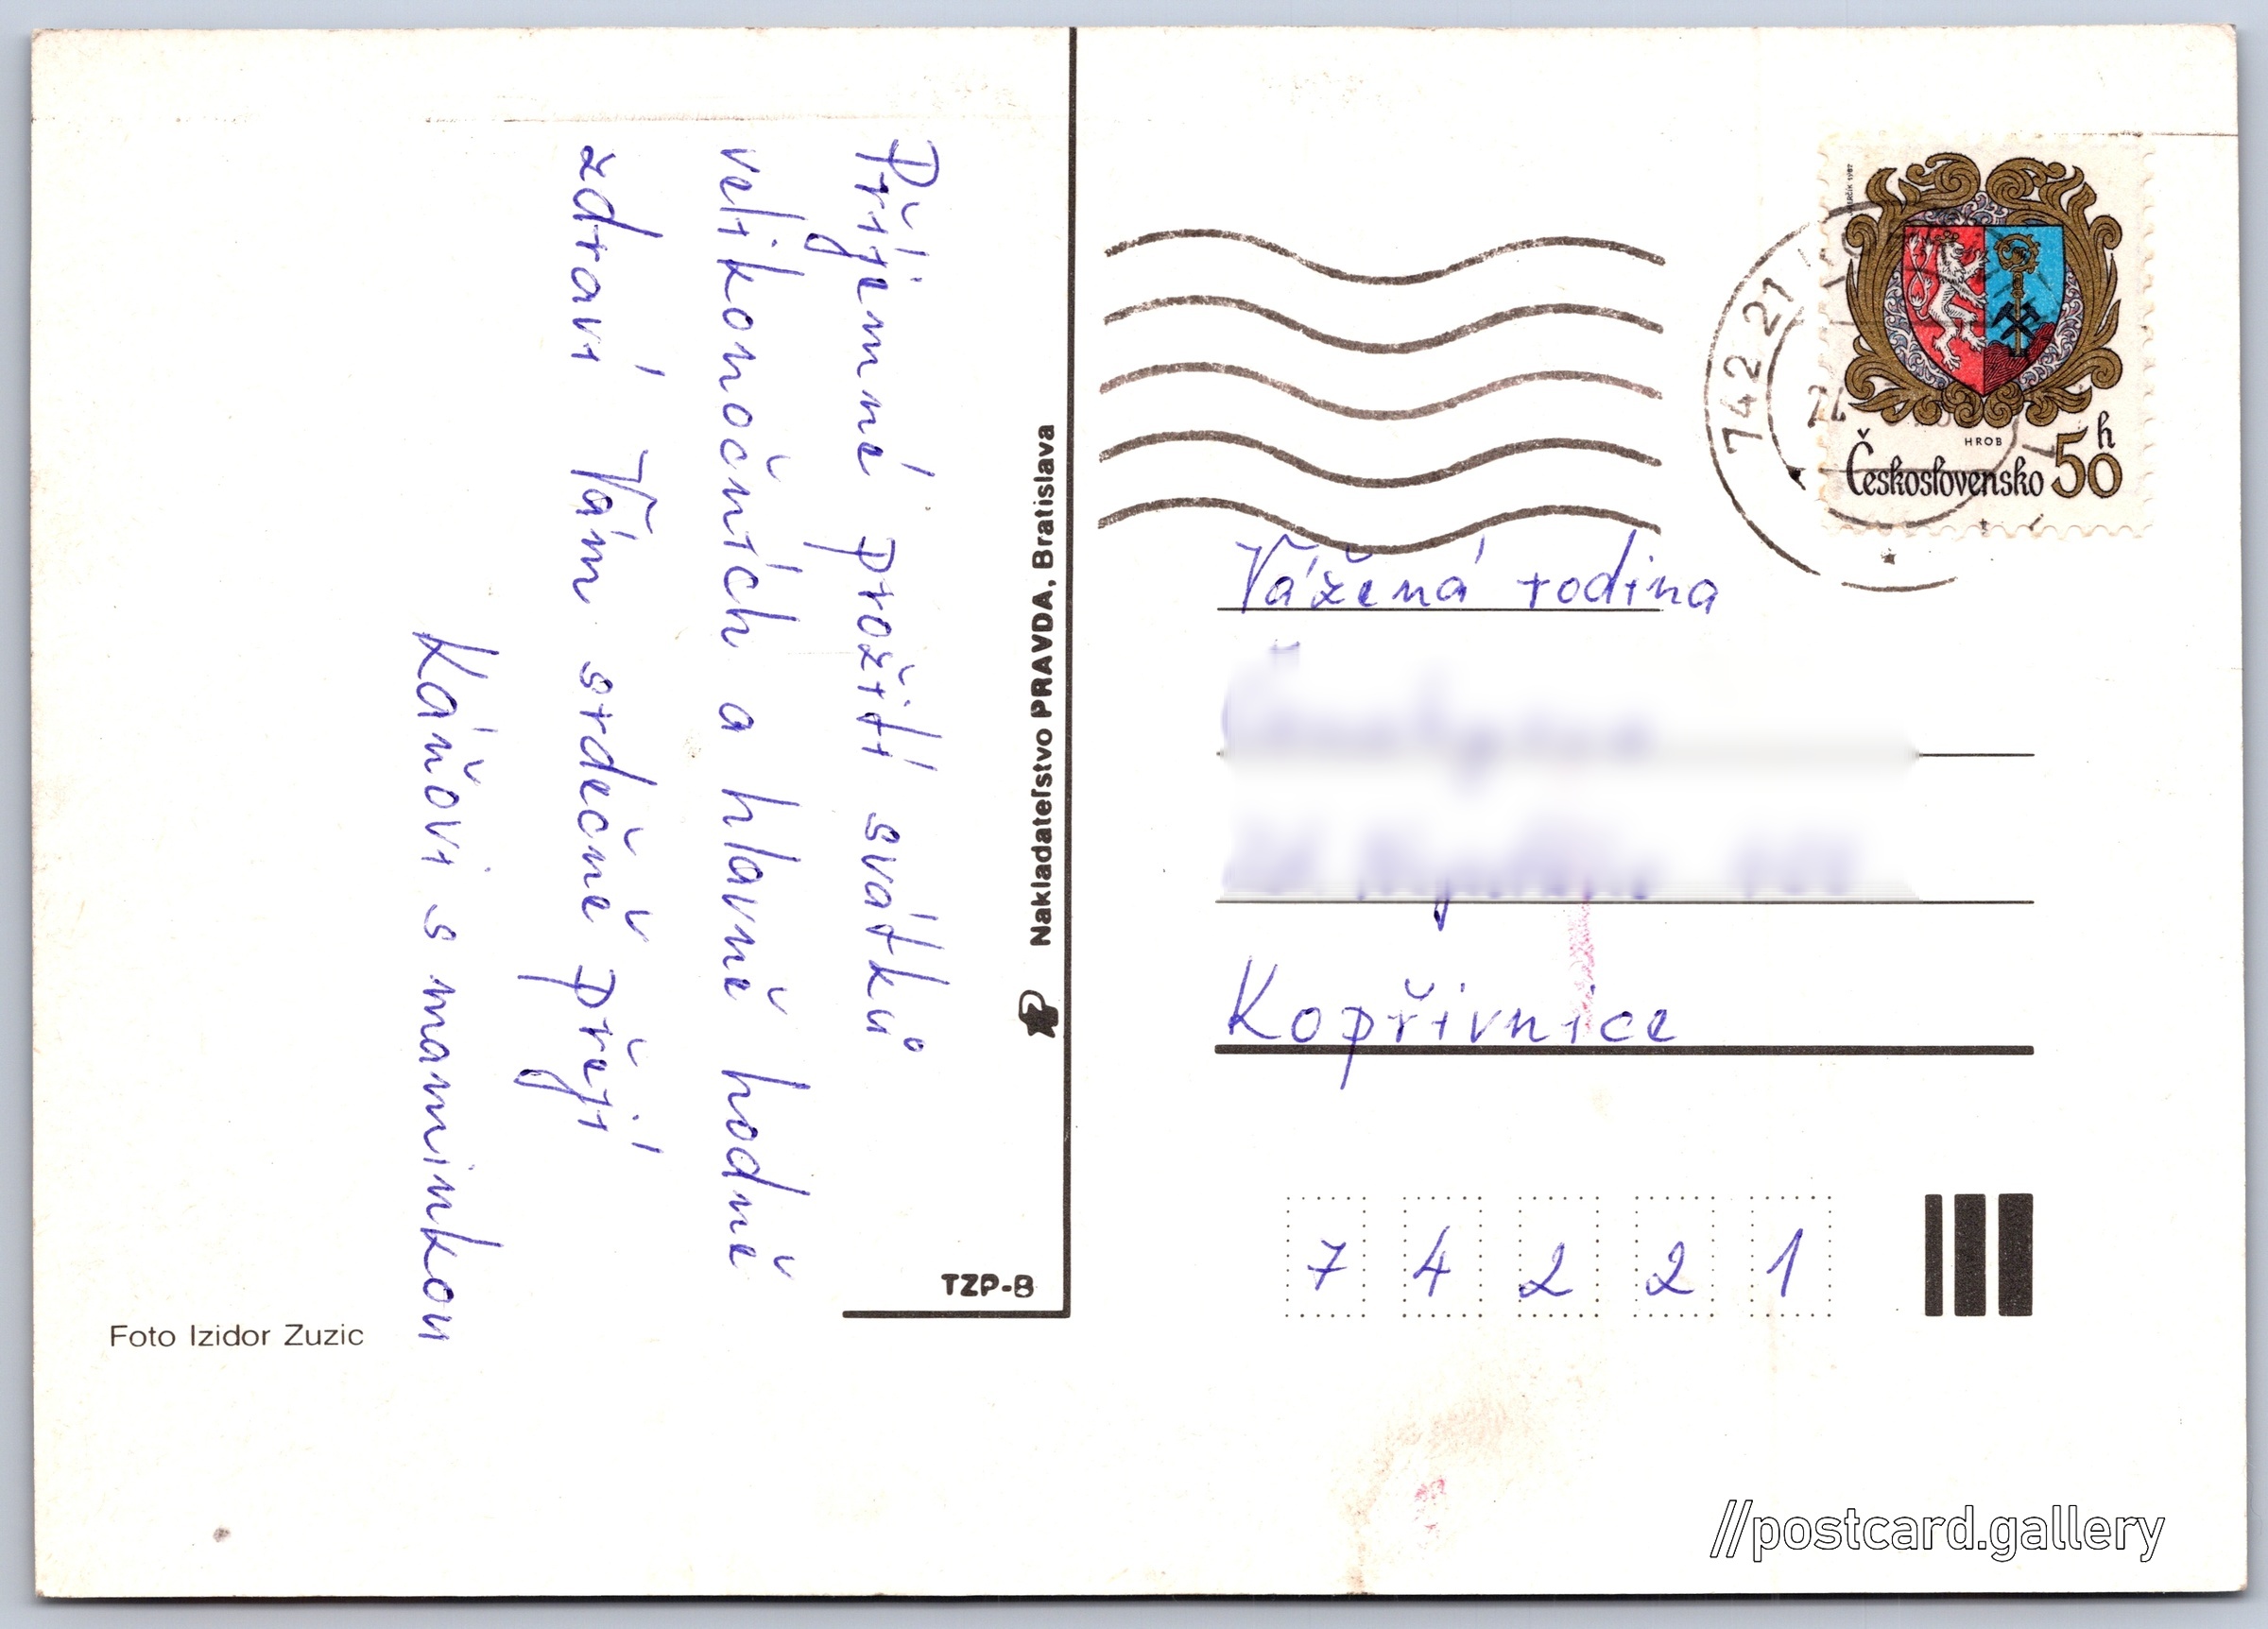 Příjemné prožití svátků
velikonočních a hlavně hodně
zdraví Vám srdečně přejí
Káňovi s maminkou
Nakladateľstvo PRAVDA, Bratislava
TZP-B
Foto Izidor Zuzic
742 21
HROB
Československo 50 h
Vážená rodina
Kopřivnice
7 4 2 2 1
//postcard.gallery